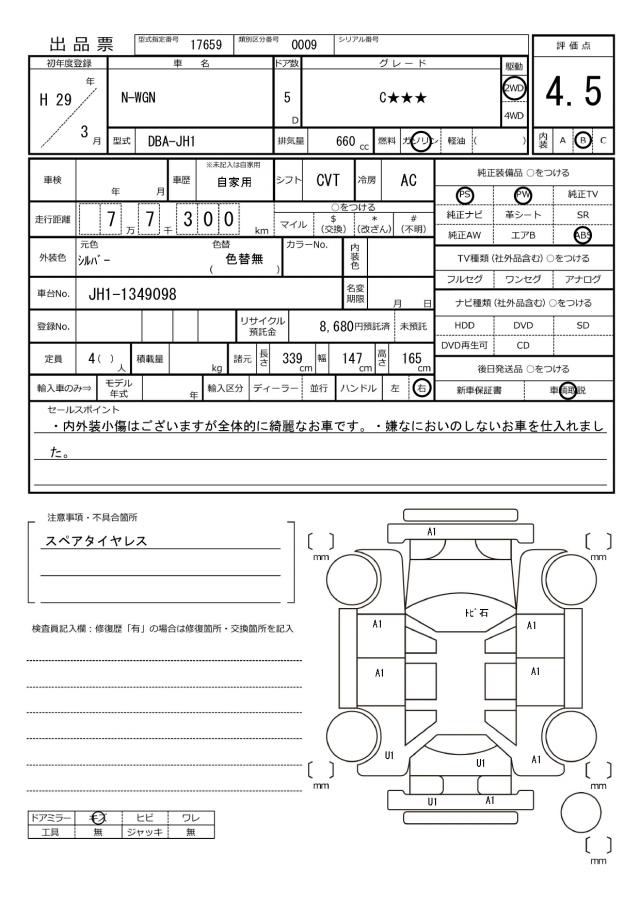 出品票
型式指定番号 17659 類別区分番号 0009 シリアル番号
初年度登録 車名 ドア数 グレード 駆動 評価点
H 29 年 3 月
N-WGN 5 D C★★★ 2WD 4WD 4.5
型式 DBA-JH1 排気量 660 cc 燃料 ガソリン 軽油 ( ) 内装 A B C
車検 年 月 車歴 ※未記入は自家用 自家用 シフト CVT 冷房 AC
走行距離 7 万 7 千 3 0 0 km
○をつける
マイル $ (交換) * (改ざん) # (不明)
外装色 元色 シルバー 色替 ( 色替無 ) カラーNo. 内装色
車台No. JH1-1349098 名変期限 月 日
登録No. リサイクル預託金 8,680円預託済 未預託
定員 4( )人 積載量 kg 諸元 長さ 339 cm 幅 147 cm 高さ 165 cm
輸入車のみ⇒ モデル年式 年 輸入区分 ディーラー 並行 ハンドル 左 右
純正装備品 ○をつける
PS PW 純正TV
純正ナビ 革シート SR
純正AW エアB ABS
TV種類 (社外品含む) ○をつける
フルセグ ワンセグ アナログ
ナビ種類 (社外品含む) ○をつける
HDD DVD SD
DVD再生可 CD
後日発送品 ○をつける
新車保証書 車輌取説
セールスポイント
・内外装小傷はございますが全体的に綺麗なお車です。・嫌なにおいのしないお車を仕入れまし
た。
注意事項・不具合箇所
スペアタイヤレス
検査員記入欄：修復歴「有」の場合は修復箇所・交換箇所を記入
A1
mm mm
トビ石
A1 A1
A1 A1
U1 U1 A1
mm mm
U1 A1
mm
ドアミラー キズ ヒビ ワレ
工具 無 ジャッキ 無